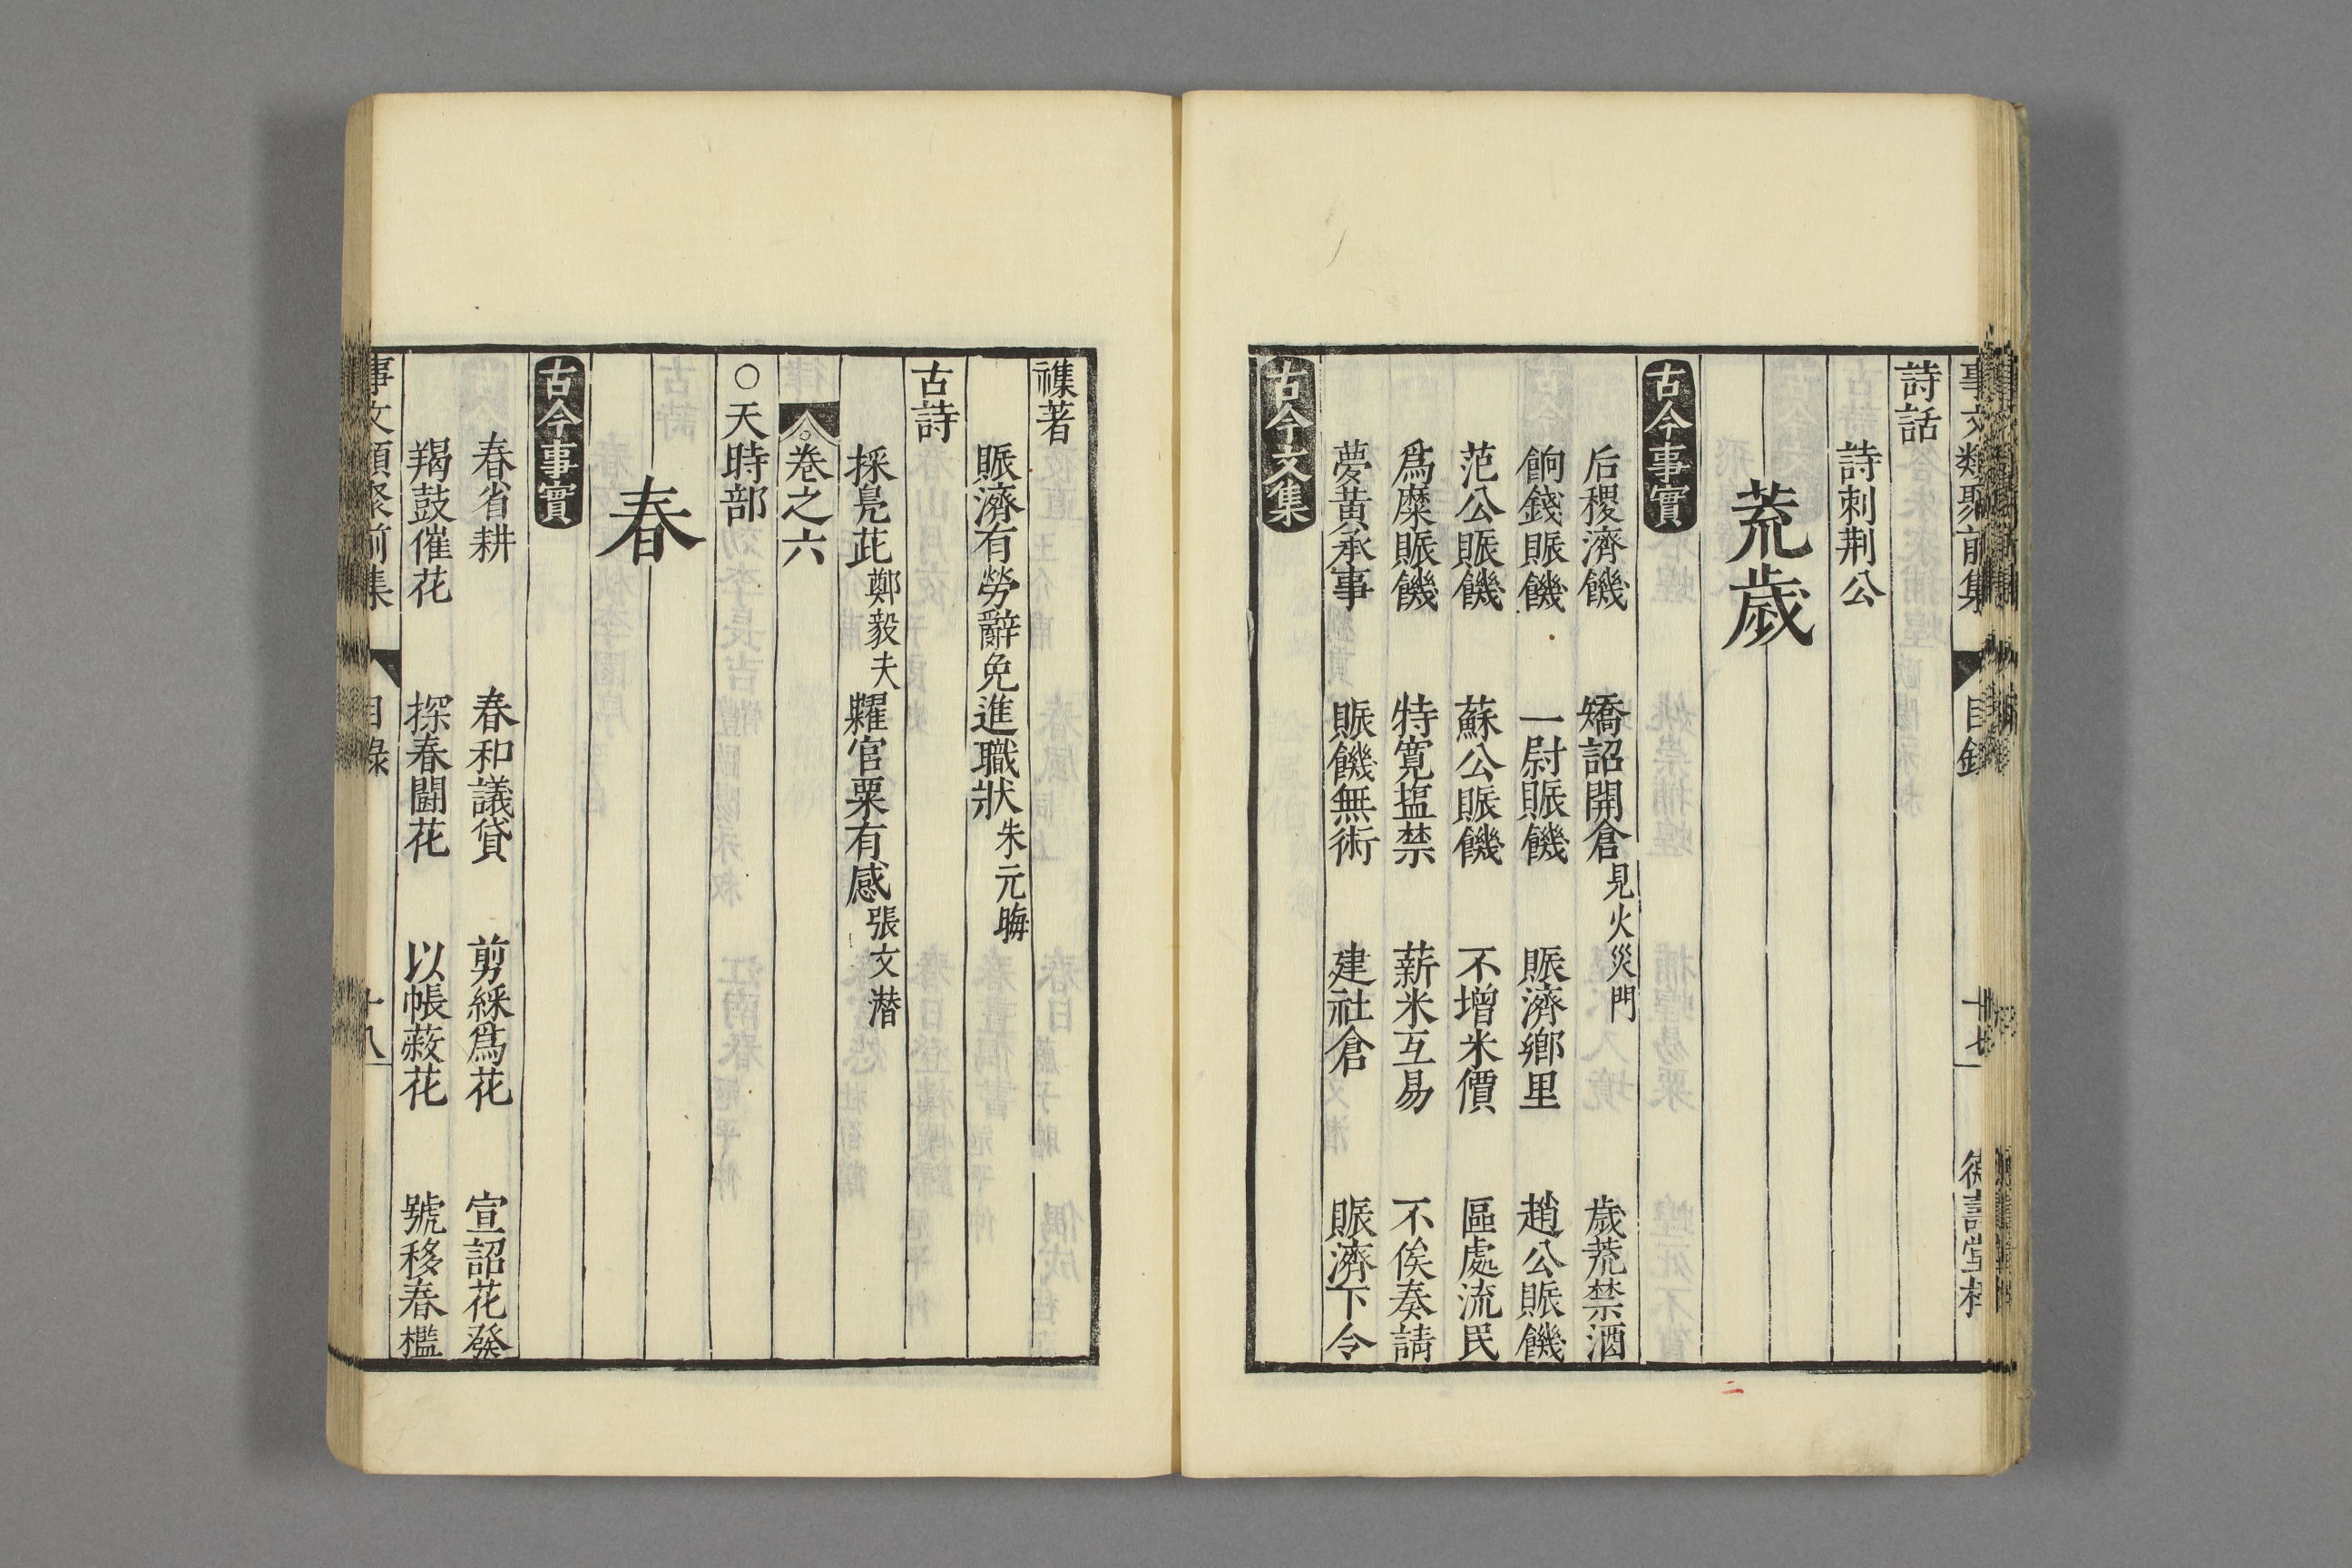 事文類聚前集 目錄
詩話
詩刺荆公
荒歲
古今事實
后稷濟饑 矯詔開倉見火災門 歲荒禁酒
餉錢賑饑 一尉賑饑 賑濟鄉里 趙公賑饑
范公賑饑 蘇公賑饑 不增米價 區處流民
爲糜賑饑 特寬塩禁 薪米互易 不俟奏請
夢黄承事 賑饑無術 建社倉 賑濟下令
古今文集
襍著
賑濟有勞辭免進職狀朱元晦
古詩
採鳧茈鄭毅夫 糶官粟有感張文潜
卷之六
○天時部
春
古今事實
春省耕 春和議貸 剪綵爲花 宣詔花發
羯鼓催花 探春鬪花 以帳蔽花 號移春檻
事文類聚前集 目錄 十八